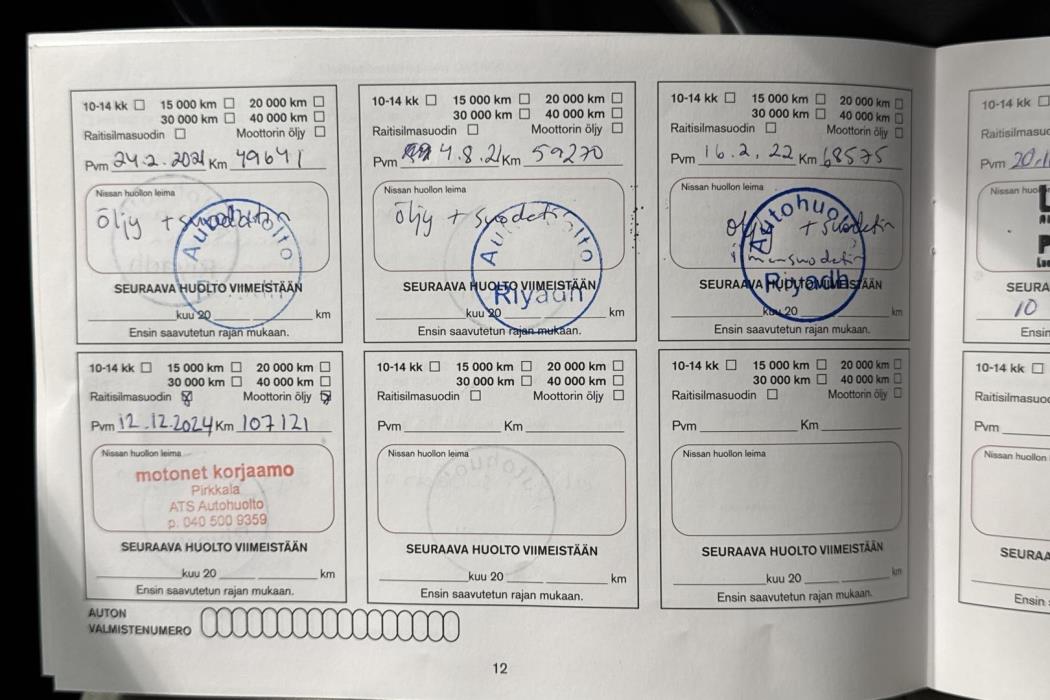 10-14 kk 15 000 km 20 000 km
30 000 km 40 000 km
Raitisilmasuodin Moottorin öljy
Pvm 24.2.2021 Km 49641
Nissan huollon leima
öljy + suodatin
Autohuolto
SEURAAVA HUOLTO VIIMEISTÄÄN
kuu 20 km
Ensin saavutetun rajan mukaan.
10-14 kk 15 000 km 20 000 km
30 000 km 40 000 km
Raitisilmasuodin Moottorin öljy
Pvm 4.8.21 Km 59270
Nissan huollon leima
öljy + suodatin
Autohuolto
Riyadh
SEURAAVA HUOLTO VIIMEISTÄÄN
kuu 20 km
Ensin saavutetun rajan mukaan.
10-14 kk 15 000 km 20 000 km
30 000 km 40 000 km
Raitisilmasuodin Moottorin öljy
Pvm 16.2.22 Km 68575
Nissan huollon leima
öljy + suodatin
Autohuolto
Riyadh
SEURAAVA HUOLTO VIIMEISTÄÄN
kuu 20 km
Ensin saavutetun rajan mukaan.
10-14 kk 15 000 km 20 000 km
30 000 km 40 000 km
Raitisilmasuodin Moottorin öljy
Pvm 12.12.2024 Km 107121
Nissan huollon leima
motonet korjaamo
Pirkkala
ATS Autohuolto
p. 040 500 9359
SEURAAVA HUOLTO VIIMEISTÄÄN
kuu 20 km
Ensin saavutetun rajan mukaan.
10-14 kk 15 000 km 20 000 km
30 000 km 40 000 km
Raitisilmasuodin Moottorin öljy
Pvm Km
Nissan huollon leima
SEURAAVA HUOLTO VIIMEISTÄÄN
kuu 20 km
Ensin saavutetun rajan mukaan.
10-14 kk 15 000 km 20 000 km
30 000 km 40 000 km
Raitisilmasuodin Moottorin öljy
Pvm Km
Nissan huollon leima
SEURAAVA HUOLTO VIIMEISTÄÄN
kuu 20 km
Ensin saavutetun rajan mukaan.
AUTON
VALMISTENUMERO
12
10-14 kk
Pvm
SEURA
10
Ensin
10-14 kk
Pvm
Nissan huollon
SEURAA
Ensin